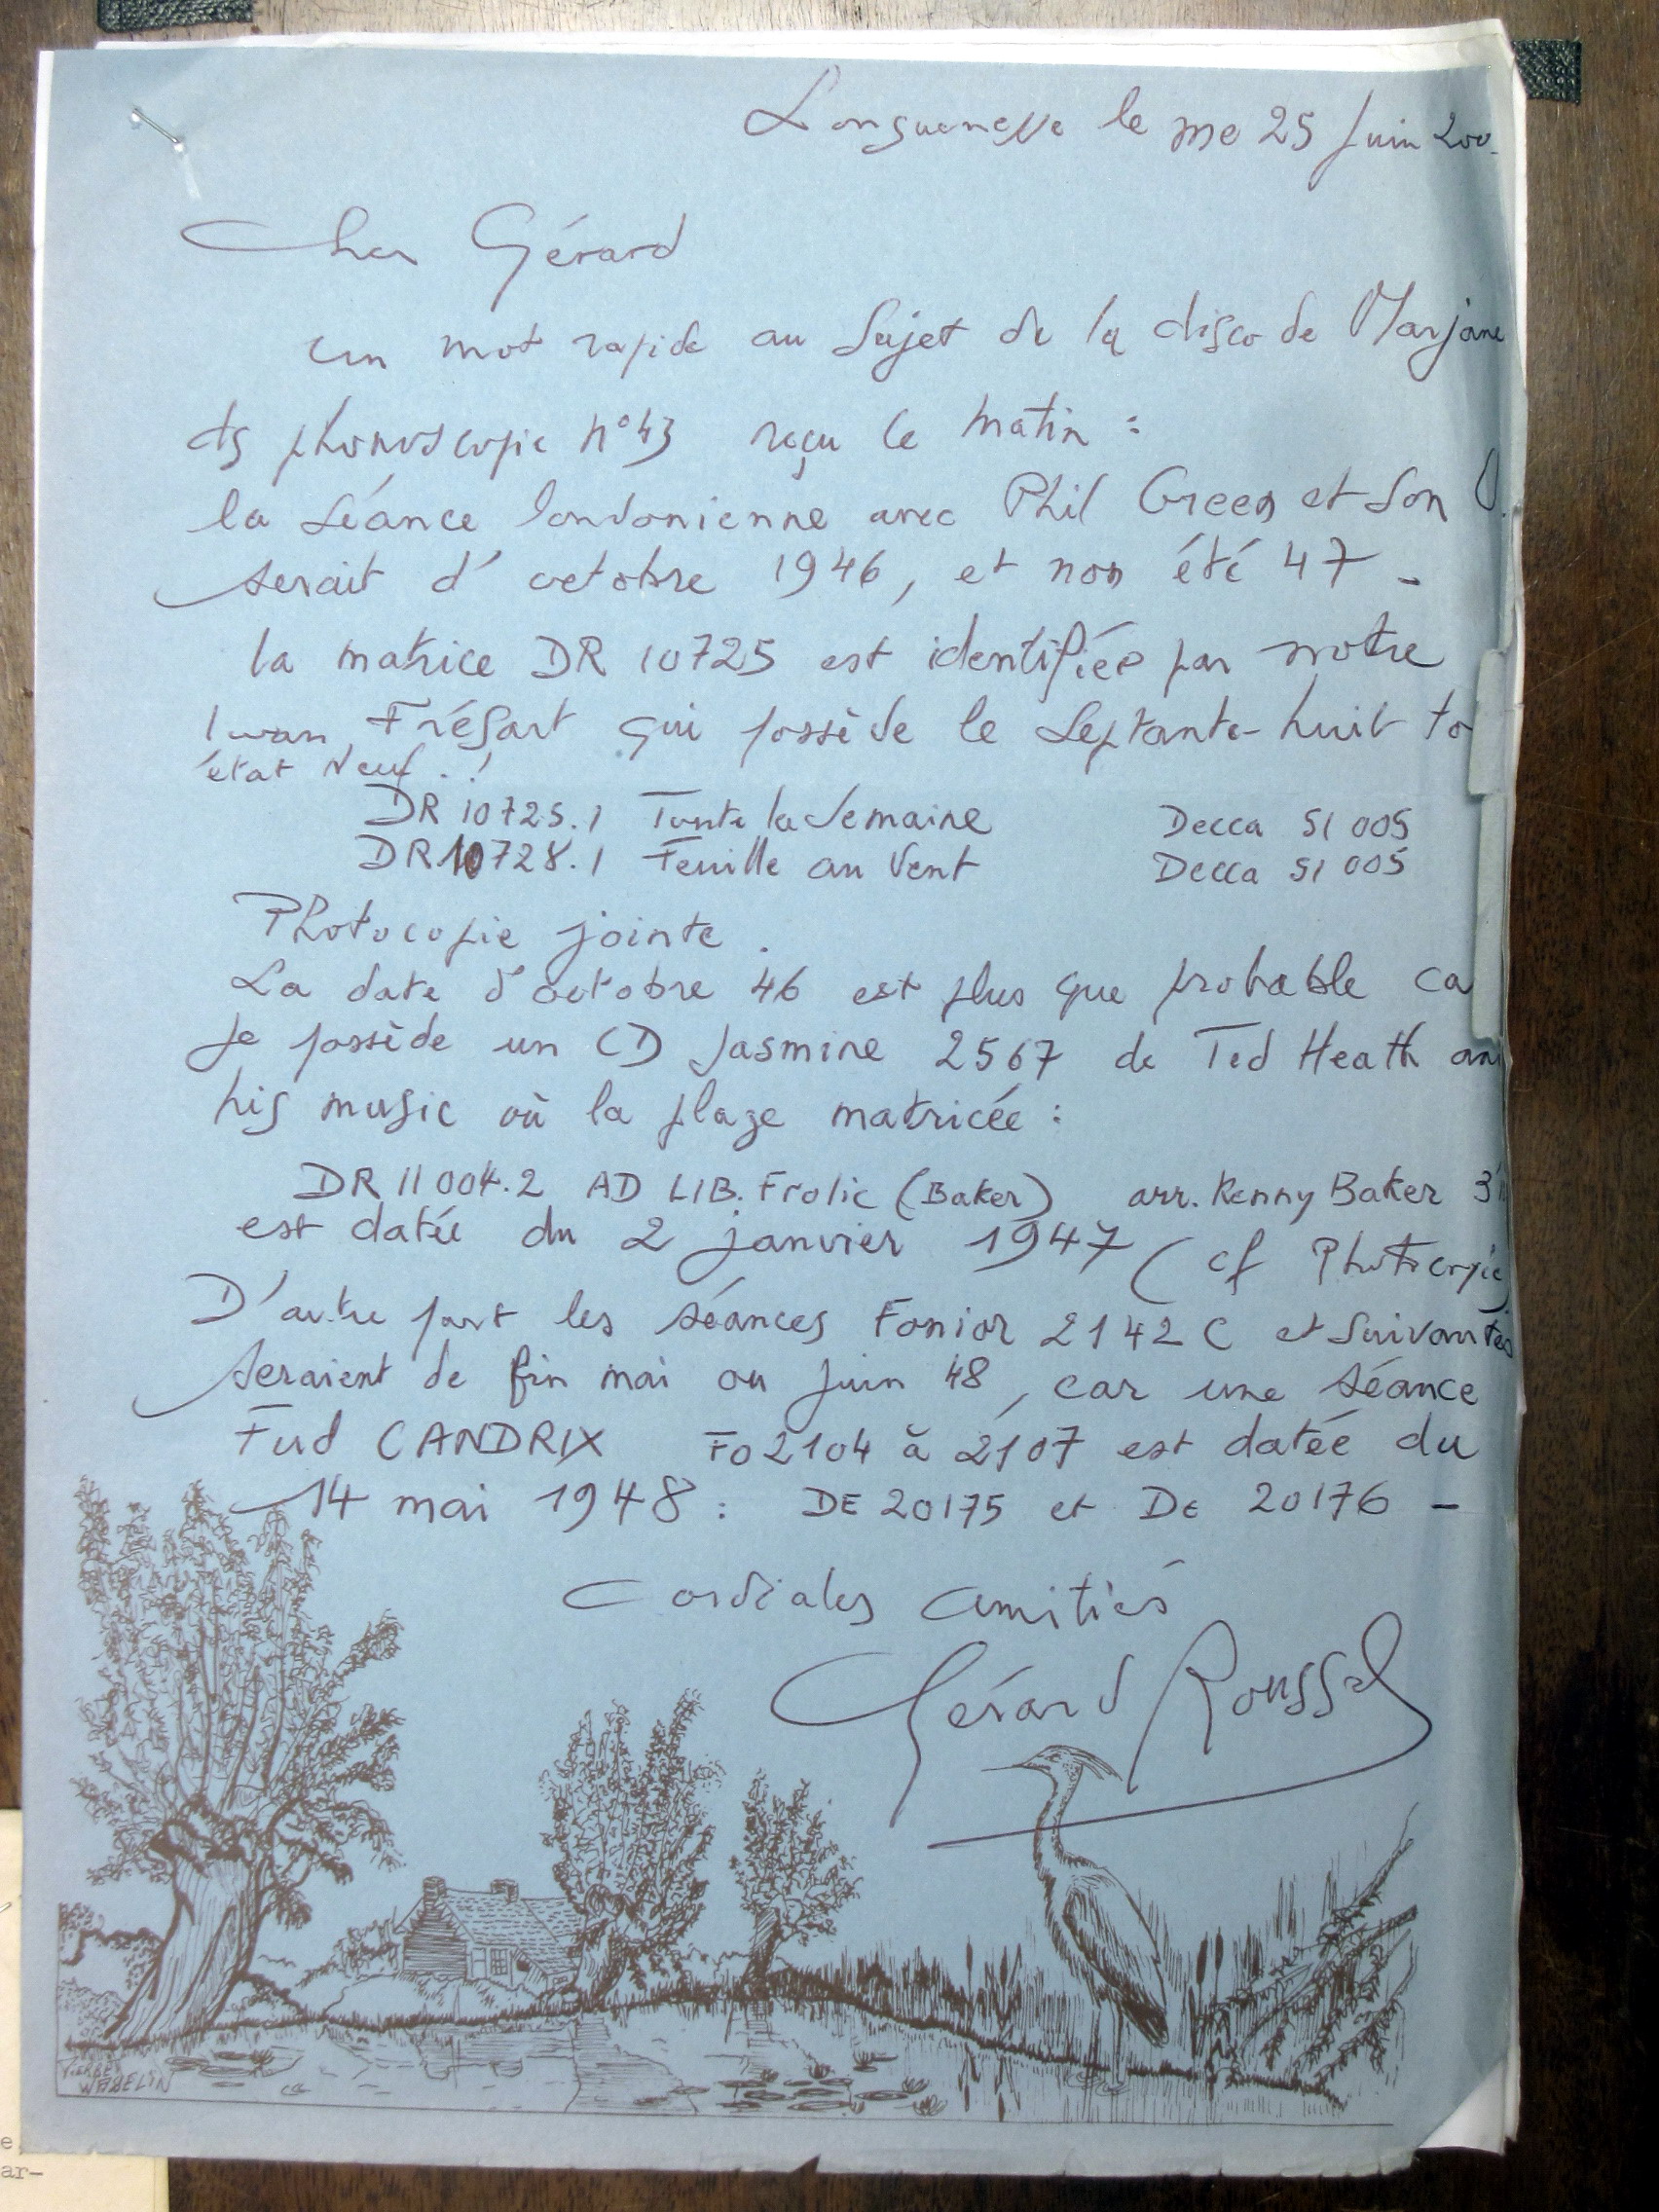 Longuenesse le me 25 Juin 200
Cher Gérard
un mot rapide au Sujet de la disco de Marjane
ds phonoscopie n°43 reçu ce matin :
la Séance londonienne avec Phil Green et Son O.
serait d'octobre 1946, et non été 47 -
la matrice DR 10725 est identifiée par notre
Iwan Frésart qui possède le Septante-huit to
état Neuf..!
DR 10725.1 Toute la Semaine Decca 51 005
DR 10728.1 Feuille au Vent Decca 51 005
Photocopie jointe.
La date d'octobre 46 est plus que probable ca
Je possède un CD Jasmine 2567 de Ted Heath an
his music où la plage matricée :
DR 11004.2 AD LIB. Frolic (Baker) arr. Kenny Baker 3'
est datée du 2 janvier 1947 (cf Photocopie)
D'autre part les séances Fonior 2142 C et Suivantes
seraient de fin mai ou juin 48, car une séance
Fud CANDRIX Fo 2104 à 2107 est datée du
14 mai 1948 : DE 20175 et DE 20176 -
Cordiales amitiés
Gérard Roussel
WABELIN
e
ar-